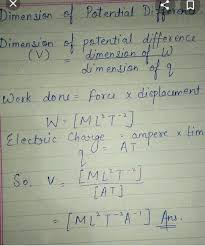 Dimension of Potential Differen
Dimension of potential difference
(V) = dimension of W
dimension of q
Work done = Force x displacement
W = [ML²T⁻²]
Electric Charge = ampere x tim
q = AT
So, V = [ML²T⁻²]
[AT]
= [ML²T⁻³A⁻¹] Ans.